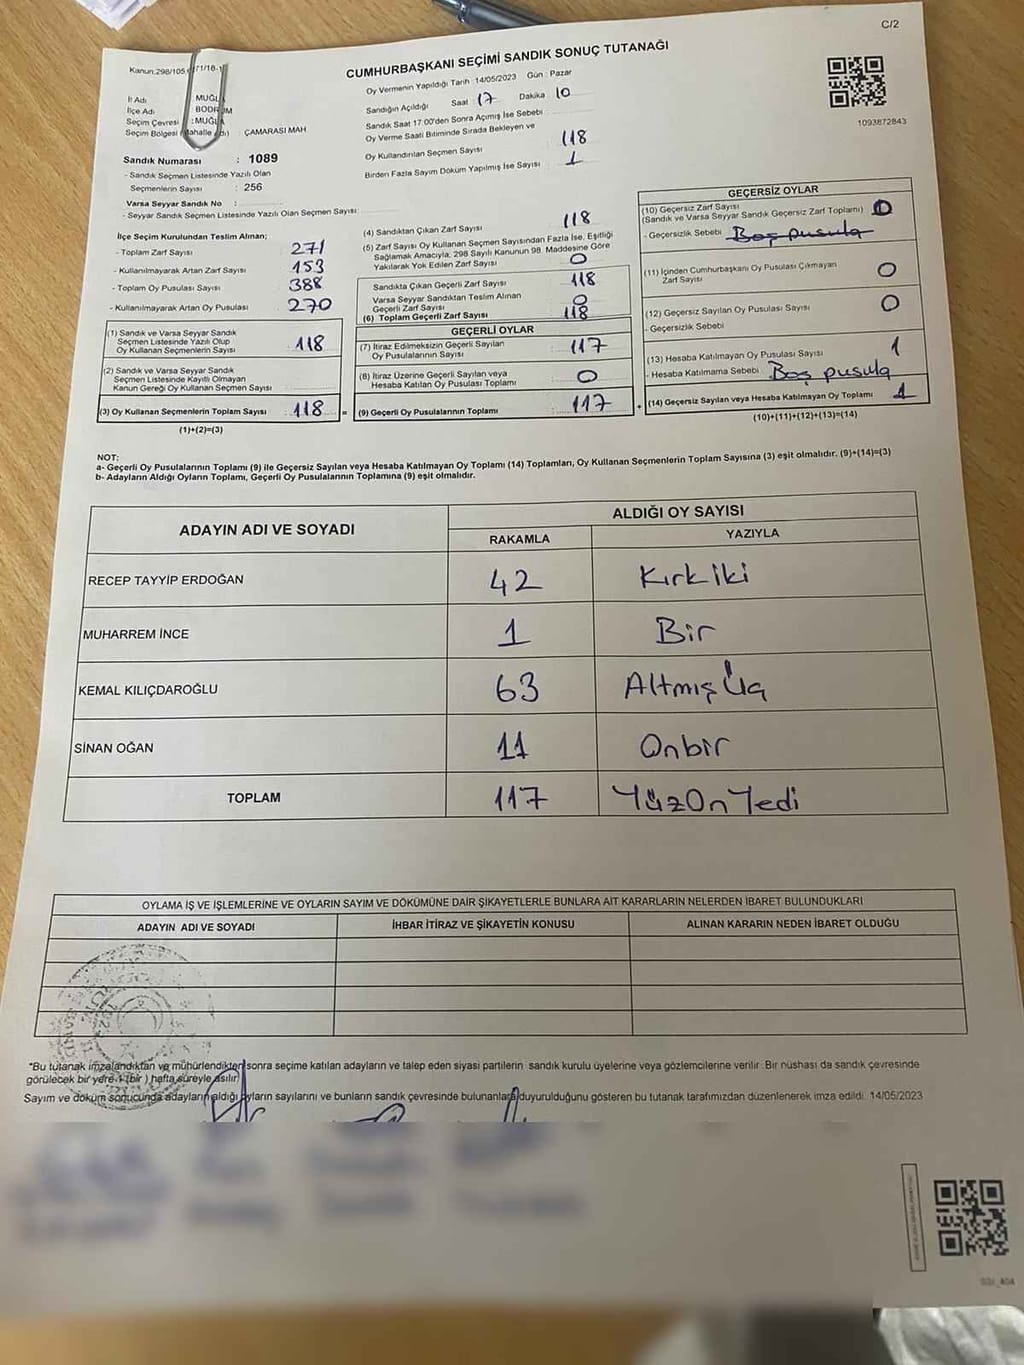 C/2
Kanun:298/105
CUMHURBAŞKANI SEÇİMİ SANDIK SONUÇ TUTANAĞI
Oy Vermenin Yapıldığı Tarih : 14/05/2023 Gün : Pazar
İl Adı : MUĞLA
İlçe Adı BODRUM
Seçim Çevresi : MUĞLA
Seçim Bölgesi (Mahalle Adı) ÇAMARASI MAH
Sandığın Açıldığı Saat 17 Dakika 10
Sandık Saat 17:00'den Sonra Açımış İse Sebebi
Oy Verme Saati Bitiminde Sırada Bekleyen ve
Oy Kullandırılan Seçmen Sayısı 118
Birden Fazla Sayım Döküm Yapılmış İse Sayısı 1
1093872843
Sandık Numarası : 1089
- Sandık Seçmen Listesinde Yazılı Olan
Seçmenlerin Sayısı : 256
Varsa Seyyar Sandık No :
- Seyyar Sandık Seçmen Listesinde Yazılı Olan Seçmen Sayısı:
İlçe Seçim Kurulundan Teslim Alınan;
- Toplam Zarf Sayısı 271
- Kullanılmayarak Artan Zarf Sayısı 153
- Toplam Oy Pusulası Sayısı 388
- Kullanılmayarak Artan Oy Pusulası 270
(1) Sandık ve Varsa Seyyar Sandık
Seçmen Listesinde Yazılı Olup
Oy Kullanan Seçmenlerin Sayısı 118
(2) Sandık ve Varsa Seyyar Sandık
Seçmen Listesinde Kayıtlı Olmayan
Kanun Gereği Oy Kullanan Seçmen Sayısı
(3) Oy Kullanan Seçmenlerin Toplam Sayısı 118 =
(1)+(2)=(3)
(4) Sandıktan Çıkan Zarf Sayısı 118
(5) Zarf Sayısı Oy Kullanan Seçmen Sayısından Fazla İse, Eşitliği
Sağlamak Amacıyla, 298 Sayılı Kanunun 98. Maddesine Göre
Yakılarak Yok Edilen Zarf Sayısı 0
Sandıkta Çıkan Geçerli Zarf Sayısı 118
Varsa Seyyar Sandıktan Teslim Alınan
Geçerli Zarf Sayısı 0
(6) Toplam Geçerli Zarf Sayısı 118
GEÇERLİ OYLAR
(7) İtiraz Edilmeksizin Geçerli Sayılan
Oy Pusulalarının Sayısı 117
(8) İtiraz Üzerine Geçerli Sayılan veya
Hesaba Katılan Oy Pusulası Toplamı 0
(9) Geçerli Oy Pusulalarının Toplamı 117 +
GEÇERSİZ OYLAR
(10) Geçersiz Zarf Sayısı
(Sandık ve Varsa Seyyar Sandık Geçersiz Zarf Toplamı) 0
- Geçersizlik Sebebi Boş pusula
(11) İçinden Cumhurbaşkanı Oy Pusulası Çıkmayan
Zarf Sayısı 0
(12) Geçersiz Sayılan Oy Pusulası Sayısı 0
- Geçersizlik Sebebi
(13) Hesaba Katılmayan Oy Pusulası Sayısı 1
- Hesaba Katılmama Sebebi Boş pusula
(14) Geçersiz Sayılan veya Hesaba Katılmayan Oy Toplamı 1
(10)+(11)+(12)+(13)=(14)
NOT:
a- Geçerli Oy Pusulalarının Toplamı (9) ile Geçersiz Sayılan veya Hesaba Katılmayan Oy Toplamı (14) Toplamları, Oy Kullanan Seçmenlerin Toplam Sayısına (3) eşit olmalıdır. (9)+(14)=(3)
b- Adayların Aldığı Oyların Toplamı, Geçerli Oy Pusulalarının Toplamına (9) eşit olmalıdır.
ADAYIN ADI VE SOYADI ALDIĞI OY SAYISI
RAKAMLA YAZIYLA
RECEP TAYYİP ERDOĞAN 42 Kırk iki
MUHARREM İNCE 1 Bir
KEMAL KILIÇDAROĞLU 63 Altmış Üç
SİNAN OĞAN 11 Onbir
TOPLAM 117 YüzOnYedi
OYLAMA İŞ VE İŞLEMLERİNE VE OYLARIN SAYIM VE DÖKÜMÜNE DAİR ŞİKAYETLERLE BUNLARA AİT KARARLARIN NELERDEN İBARET BULUNDUKLARI
ADAYIN ADI VE SOYADI İHBAR İTİRAZ VE ŞİKAYETİN KONUSU ALINAN KARARIN NEDEN İBARET OLDUĞU
"Bu tutanak imzalandıktan ve mühürlendikten sonra seçime katılan adayların ve talep eden siyasi partilerin sandık kurulu üyelerine veya gözlemcilerine verilir. Bir nüshası da sandık çevresinde
görülecek bir yere 1 (bir) hafta süreyle asılır)
Sayım ve döküm sonucunda adayların aldığı oyların sayılarını ve bunların sandık çevresinde bulunanlara duyurulduğunu gösteren bu tutanak tarafımızdan düzenlenerek imza edildi. 14/05/2023